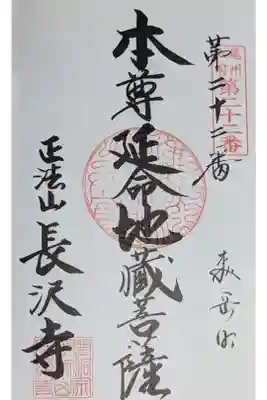 第二十二番
第二十二番
本尊延命地蔵菩薩
正法山 長沢寺